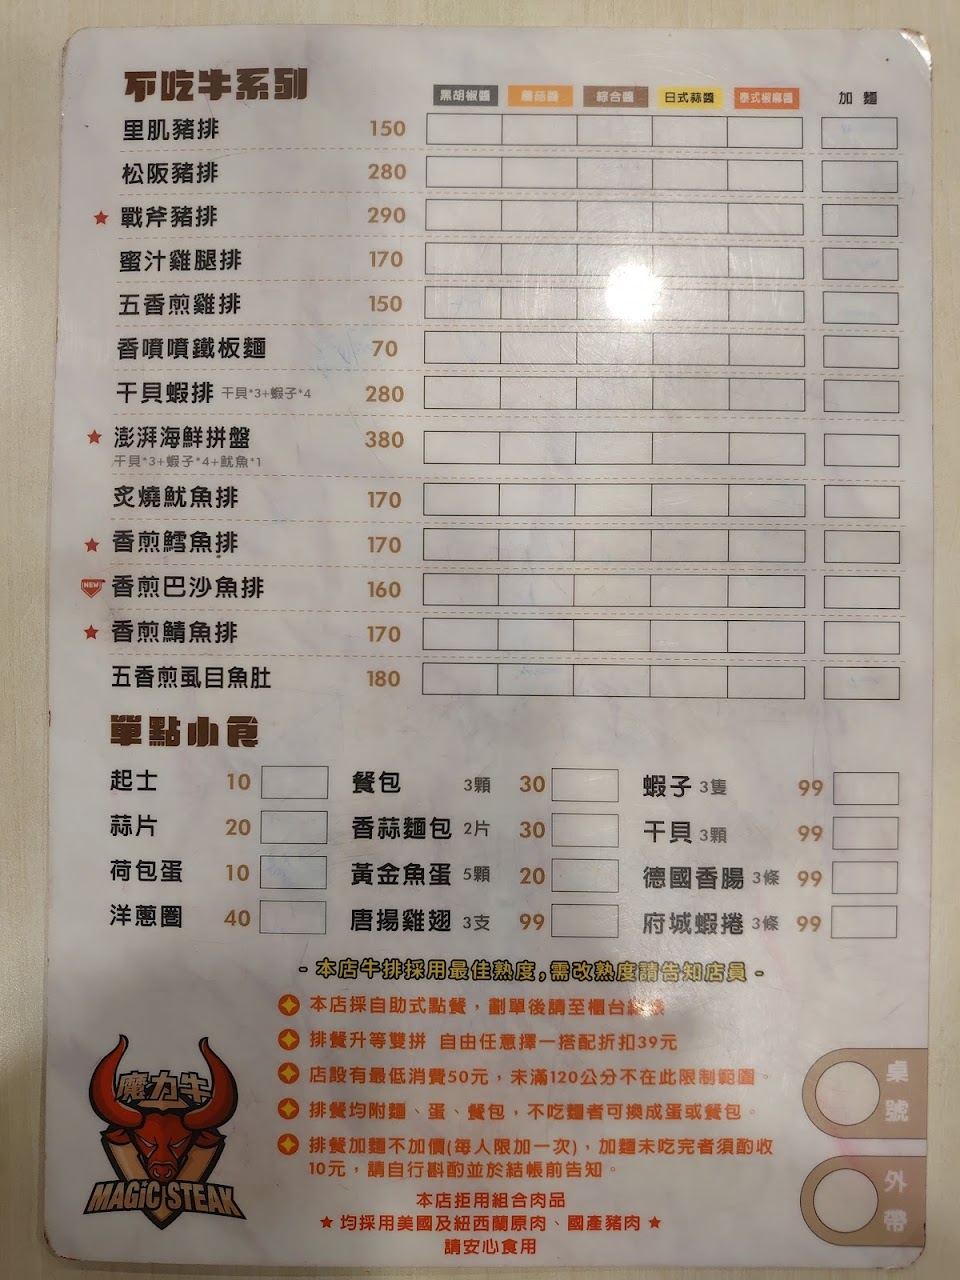 不吃牛系列 黑胡椒醬 蘑菇醬 綜合醬 日式蒜醬 泰式椒麻醬 加麵
里肌豬排 150
松阪豬排 280
★ 戰斧豬排 290
蜜汁雞腿排 170
五香煎雞排 150
香噴噴鐵板麵 70
干貝蝦排 干貝*3+蝦子*4 280
★ 澎湃海鮮拼盤 380
干貝*3+蝦子*4+魷魚*1
炙燒魷魚排 170
★ 香煎鱈魚排 170
NEW 香煎巴沙魚排 160
★ 香煎鯖魚排 170
五香煎虱目魚肚 180
單點小食
起士 10 餐包 3顆 30 蝦子 3隻 99
蒜片 20 香蒜麵包 2片 30 干貝 3顆 99
荷包蛋 10 黃金魚蛋 5顆 20 德國香腸 3條 99
洋蔥圈 40 唐揚雞翅 3支 99 府城蝦捲 3條 99
- 本店牛排採用最佳熟度,需改熟度請告知店員 -
本店採自助式點餐，劃單後請至櫃台
排餐升等雙拼 自由任意擇一搭配折扣39元
店設有最低消費50元，未滿120公分不在此限制範圍。
排餐均附麵、蛋、餐包，不吃麵者可換成蛋或餐包。
排餐加麵不加價(每人限加一次)，加麵未吃完者須酌收
10元，請自行斟酌並於結帳前告知。
本店拒用組合肉品
★ 均採用美國及紐西蘭原肉、國產豬肉 ★
請安心食用
魔力牛
MAGIC STEAK
桌號
外帶